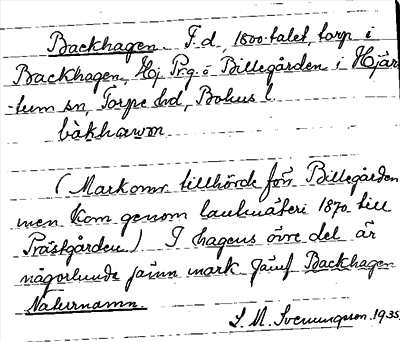 Backhagen. F.d. 1800-talet, torp i
Backhagen, Hj Prg o Billegården i Hjär-
tum sn, Torpe hd, Bohus l.
bàkhawon
(Markomr tillhörde förr Billegården
men kom genom lantmäteri 1870 till
Prästgården) I hagens övre del är
någorlunda jämn mark Jämf Backhagen
Naturnamn.
S. M. Svenungson 1935